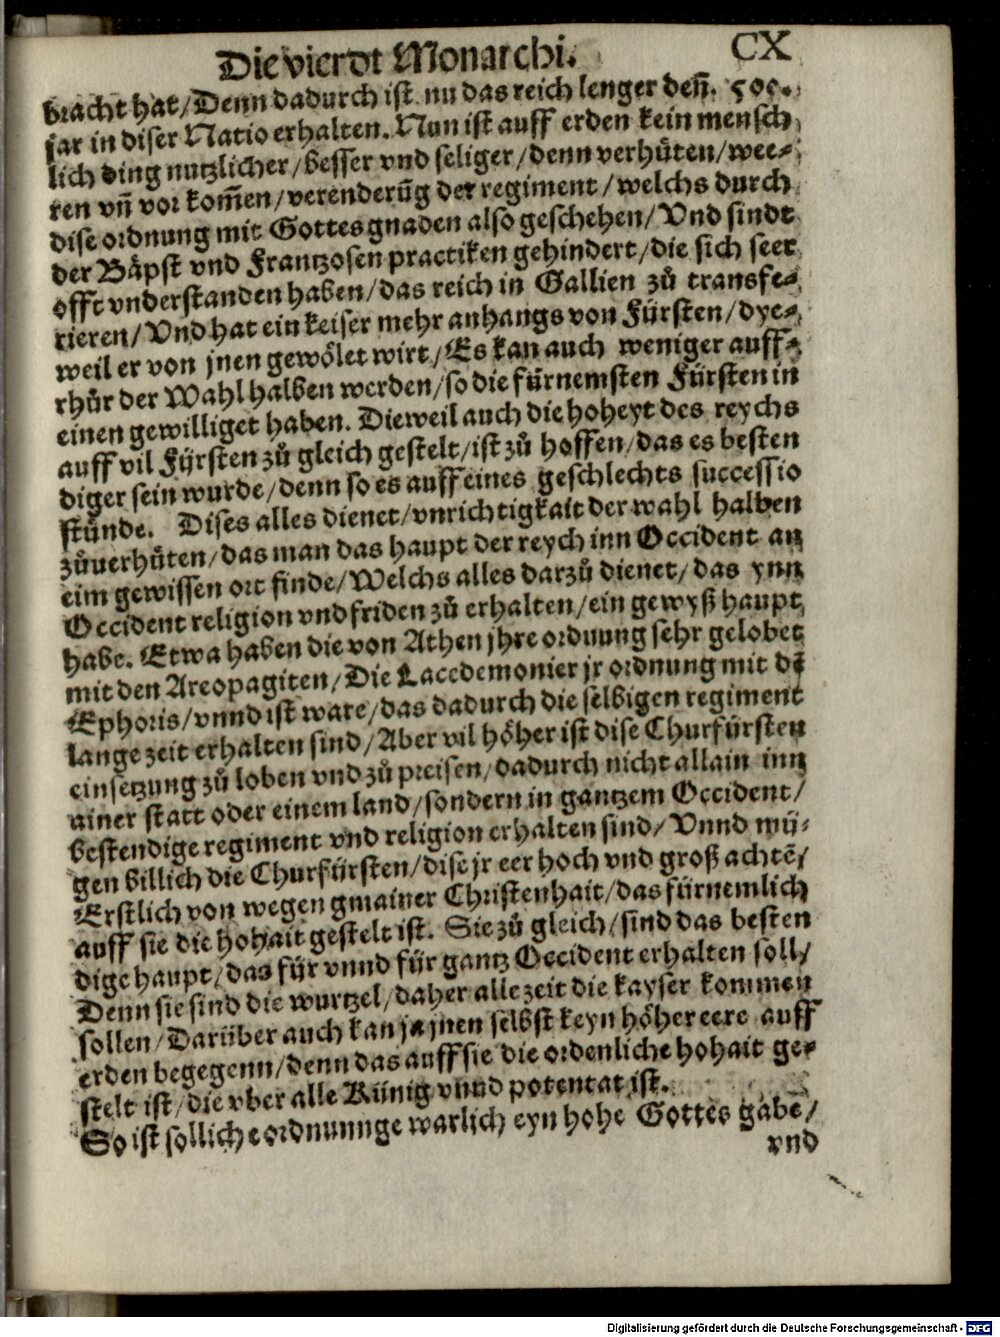 Die vierdt Monarchi. CX
bracht hat/Denn dadurch ist nu das reich lenger deñ. 500.
jar in diser Natio erhalten. Nun ist auff erden kein mensch
lich ding nutzlicher/besser vnd seliger/denn verhüten/wee-
ren vñ vor kom̃en/verenderũg der regiment/welchs durch
dise ordnung mit Gottes gnaden also geschehen/Vnd sindt
der Bäpst vnd Frantzosen practiken gehindert/die sich seer
offt vnderstanden haben/das reich in Gallien zů transfe-
rieren/Vnd hat ein keiser mehr anhangs von Fürsten/dye-
weil er von jnen gewölet wirt/Es kan auch weniger auff-
rhůr der Wahl halben werden/so die fürnemsten Fürsten in
einen gewilliget haben. Dieweil auch die hoheyt des reychs
auff vil Fürsten zů gleich gestelt/ist zů hoffen/das es besten
diger sein wurde/denn so es auff eines geschlechts successio
stünde. Dises alles dienet/vnrichtigkait der wahl halben
zůuerhüten/das man das haupt der reych inn Occident an
eim gewissen ort finde/Welchs alles darzů dienet/das ynn
Occident religion vnd friden zů erhalten/ein gewyß haupt
habe. Etwa haben die von Athen jhre ordnung sehr gelobet
mit den Areopagiten/Die Lacedemonier jr ordnung mit dẽ
Ephoris/vnnd ist ware/das dadurch die selbigen regiment
lange zeit erhalten sind/Aber vil höher ist dise Churfürsten
einsetzung zů loben vnd zů preisen/dadurch nicht allain inn
ainer statt oder einem land/sondern in gantzem Occident/
bestendige regiment vnd religion erhalten sind/Vnnd mü-
gen billich die Churfürsten/dise jr eer hoch vnd groß achtẽ/
Erstlich von wegen gmainer Christenhait/das fürnemlich
auff sie die hohait gestelt ist. Sie zů gleich/sind das besten
dige haupt/das für vnnd für gantz Occident erhalten soll/
Denn sie sind die wurtzel/daher alle zeit die kayser kommen
sollen/Darüber auch kan ja jnen selbst keyn höher eere auff
erden begegenn/denn das auff sie die ordenliche hohait ge-
stelt ist/die vber alle Künig vnnd potentat ist.
So ist solliche ordnunnge warlich eyn hohe Gottes gabe/
vnd
Digitalisierung gefördert durch die Deutsche Forschungsgemeinschaft - DFG